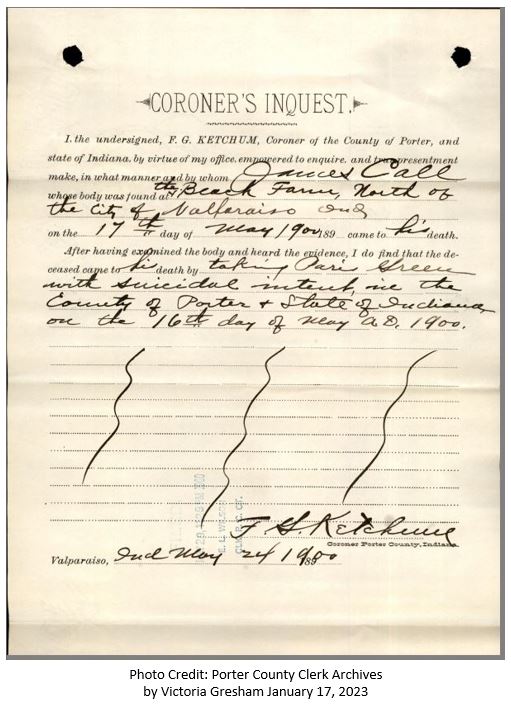 CORONER'S INQUEST.
I, the undersigned, F. G. KETCHUM, Coroner of the County of Porter, and
state of Indiana, by virtue of my office, empowered to enquire, and true presentment
make, in what manner and by whom James Call
whose body was found at the Beach Farm, North of
the City of Valparaiso Ind
on the 17th day of May 1900 189 came to his death.
After having examined the body and heard the evidence, I do find that the de-
ceased came to his death by taking Paris Green
with suicidal intent, in the
County of Porter + State of Indiana,
on the 16th day of May A.D. 1900.
F. G. Ketchum
Coroner Porter County, Indiana.
Valparaiso, Ind May 24 1900 189
Photo Credit: Porter County Clerk Archives
by Victoria Gresham January 17, 2023